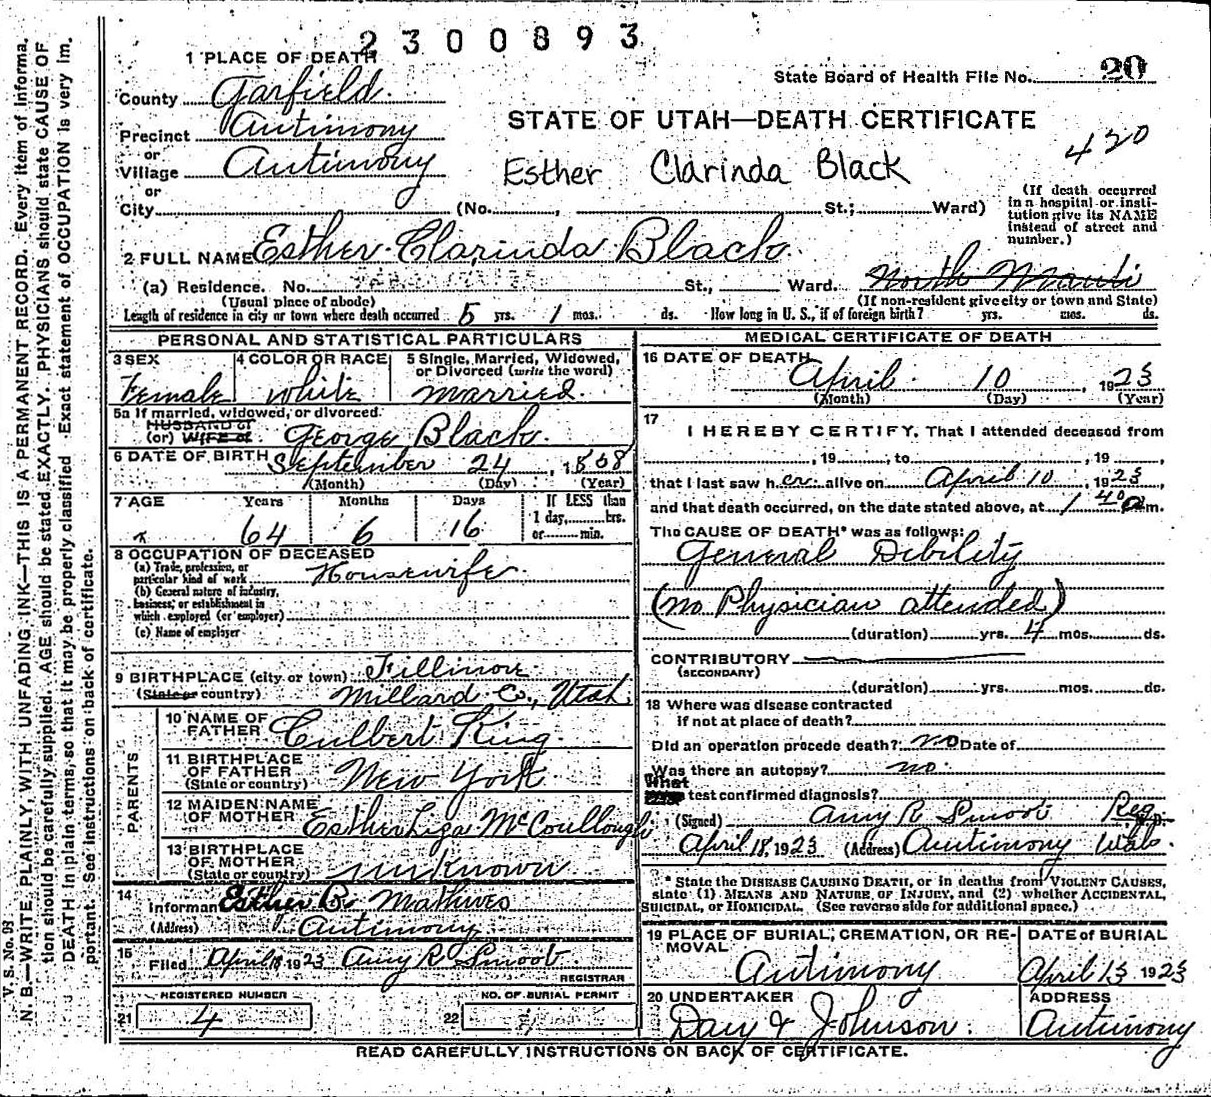 2300893
1 PLACE OF DEATH
State Board of Health File No. 20
County Garfield
STATE OF UTAH—DEATH CERTIFICATE
420
Precinct Antimony
or
Village Antimony
Esther Clarinda Black
or
City (No. , St.; Ward)
(If death occurred in a hospital or institution give its NAME instead of street and number.)
2 FULL NAME Esther Clarinda Black
(a) Residence. No. St., Ward. North Manti
(Usual place of abode) (If non-resident give city or town and State)
Length of residence in city or town where death occurred 5 yrs. 1 mos. ds. How long in U. S., if of foreign birth? yrs. mos. ds.
PERSONAL AND STATISTICAL PARTICULARS
3 SEX 4 COLOR OR RACE 5 Single, Married, Widowed, or Divorced (write the word)
Female white married
5a If married, widowed, or divorced
HUSBAND of
(or) WIFE of George Black.
6 DATE OF BIRTH September 24, 1858
(Month) (Day) (Year)
7 AGE Years Months Days If LESS than
64 6 16 1 day, hrs.
or min.
8 OCCUPATION OF DECEASED
(a) Trade, profession, or
particular kind of work Housewife
(b) General nature of industry,
business, or establishment in
which employed (or employer)
(c) Name of employer
9 BIRTHPLACE (city or town) Fillmore
(State or country) Millard Co., Utah
PARENTS
10 NAME OF
FATHER Culbert King
11 BIRTHPLACE
OF FATHER
(State or country) New York
12 MAIDEN NAME
OF MOTHER Esther Liza McCoullough
13 BIRTHPLACE
OF MOTHER
(State or country) unknown
14
Informan Esther B. Mathews
(Address) Antimony
15
Filed April 18 1923 Amy R Smoot.
REGISTRAR
REGISTERED NUMBER NO. OF BURIAL PERMIT
21 4 22
MEDICAL CERTIFICATE OF DEATH
16 DATE OF DEATH April 10, 1923
(Month) (Day) (Year)
17
I HEREBY CERTIFY, That I attended deceased from
, 19 , to , 19 ,
that I last saw h er alive on April 10, 1923,
and that death occurred, on the date stated above, at 1 40 a m.
The CAUSE OF DEATH* was as follows:
General Dibility
(no Physician attended)
(duration) yrs. 4 mos. ds.
CONTRIBUTORY
(SECONDARY)
(duration) yrs. mos. ds.
18 Where was disease contracted
if not at place of death?
Did an operation precede death? no Date of
Was there an autopsy? no.
What test confirmed diagnosis?
(Signed) Amy R Smoot Reg
April 18, 1923 (Address) Antimony Utah.
* State the DISEASE CAUSING DEATH, or in deaths from VIOLENT CAUSES,
state (1) MEANS AND NATURE OF INJURY, and (2) whether ACCIDENTAL,
SUICIDAL, or HOMICIDAL. (See reverse side for additional space.)
19 PLACE OF BURIAL, CREMATION, OR RE-
MOVAL DATE of BURIAL
Antimony April 13 1923
20 UNDERTAKER ADDRESS
Johnson. Antimony
READ CAREFULLY INSTRUCTIONS ON BACK OF CERTIFICATE.
V. S. No. 95
N. B.—WRITE PLAINLY, WITH UNFADING INK—THIS IS A PERMANENT RECORD. Every item of informa-
tion should be carefully supplied. AGE should be stated EXACTLY. PHYSICIANS should state CAUSE OF
DEATH in plain terms, so that it may be properly classified. Exact statement of OCCUPATION is very im-
portant. See instructions on back of certificate.